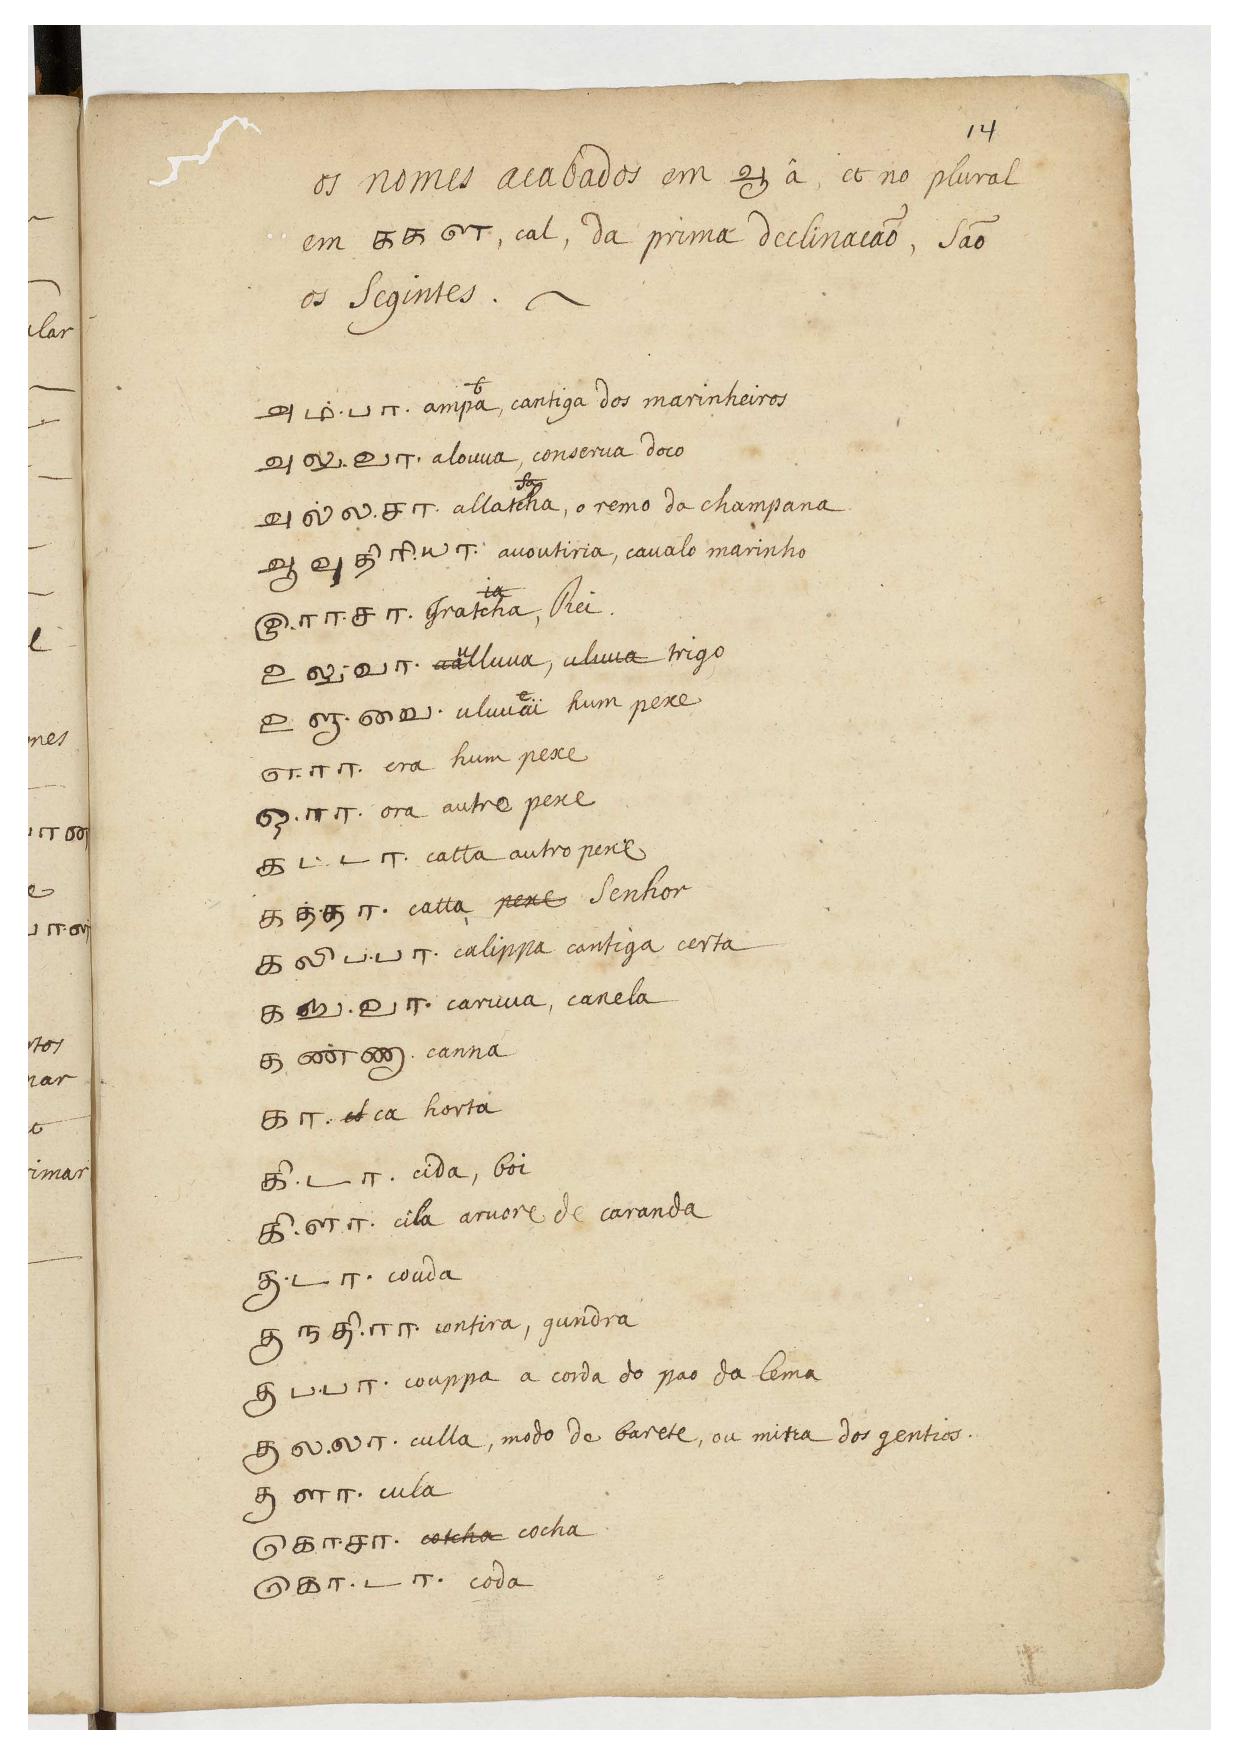 14
os nomes acabados em ஆ â, et no plural
em ககள, cal, da prima declinacaõ, Saõ
os Segintes.
அம்.பா. ampa, cantiga dos marinheiros
அலு.வா. alouua, conserua doco
அல்ல.சா. allatcha, o remo da champana
ஆவுதிரி.யா. auoutiria, caualo marinho
இ.ரா.சா. Iratcha, Rei.
உலு.வா. ulluua, uluua trigo
உளு.வை. uluuaï hum pexe
எ.ரா. era hum pexe
ஒ.ரா. ora autro pexe
கட.டா. catta autro pexe
கத்.தா. catta pexe Senhor
கலிப.பா. calippa cantiga certa
கரு.வா. caruua, canela
கண்ணா. canna
கா. ca horta
கி.டா. cida, boi
கி.ளா. cila aruore de caranda
கு.டா. couda
குநதி.ரா. contira, gundra
குப.பா. couppa a corda do pao da lema
குல.லா. culla, modo de barete, ou mitra dos gentios.
குளா. cula
கொ.சா. cotcha cocha
கொ.டா. coda